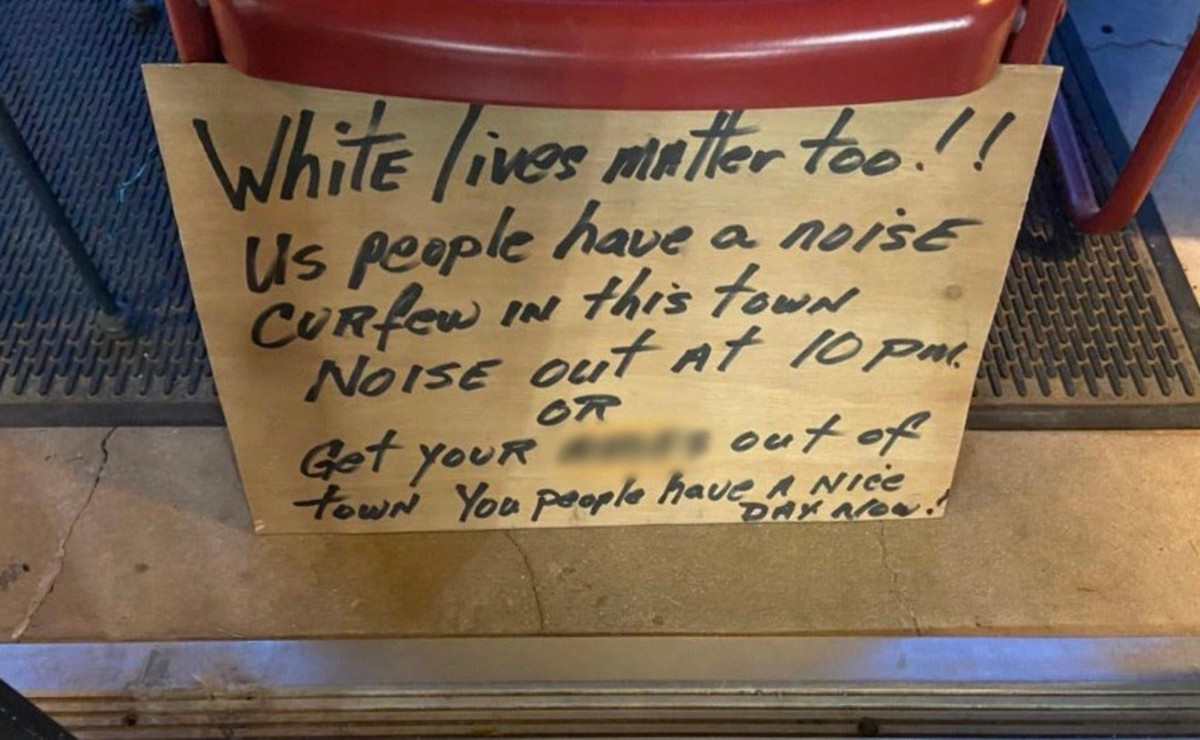 WhiTE lives mATTer too.!!
Us people have a noisE
CURfew IN this TOWN
NOISE out AT 10 pm.
OR
Get YOUR out of
TOWN You people have A Nice
DAY Now.!